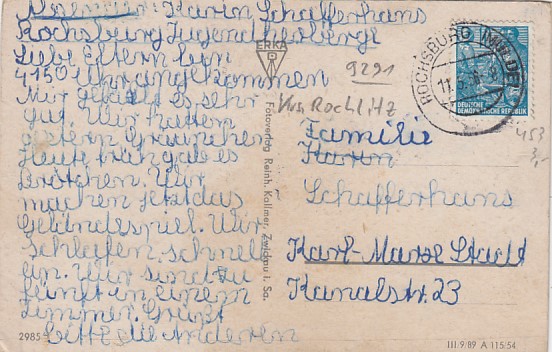 Absender: Karin Schafferhans
Rochsburg Jugendherberge
Liebe Eltern bin
4150 Uhr angekommen
Mir gefällt es sehr
gut. Wir hatten
gestern Graupchen
Heute früh gab es
Brötchen. Wir
machen jetzt das
Geländespiel. Wir
schlafen schnell
ein. Wir sind zu
fünft in einem
Zimmer. Grüßt
bitte die anderen
2985
ERKA
Fotoverlag Reinh. Kallmer, Zwickau i. Sa.
9291
Krs. Rochlitz
ROCHSBURG (MULDE)
DEUTSCHE
DEMOKRATISCHE REPUBLIK
453
Familie
Karin
Schafferhans
Karl-Marx Stadt
Kanalstr. 23
III.9/89 A 115/54